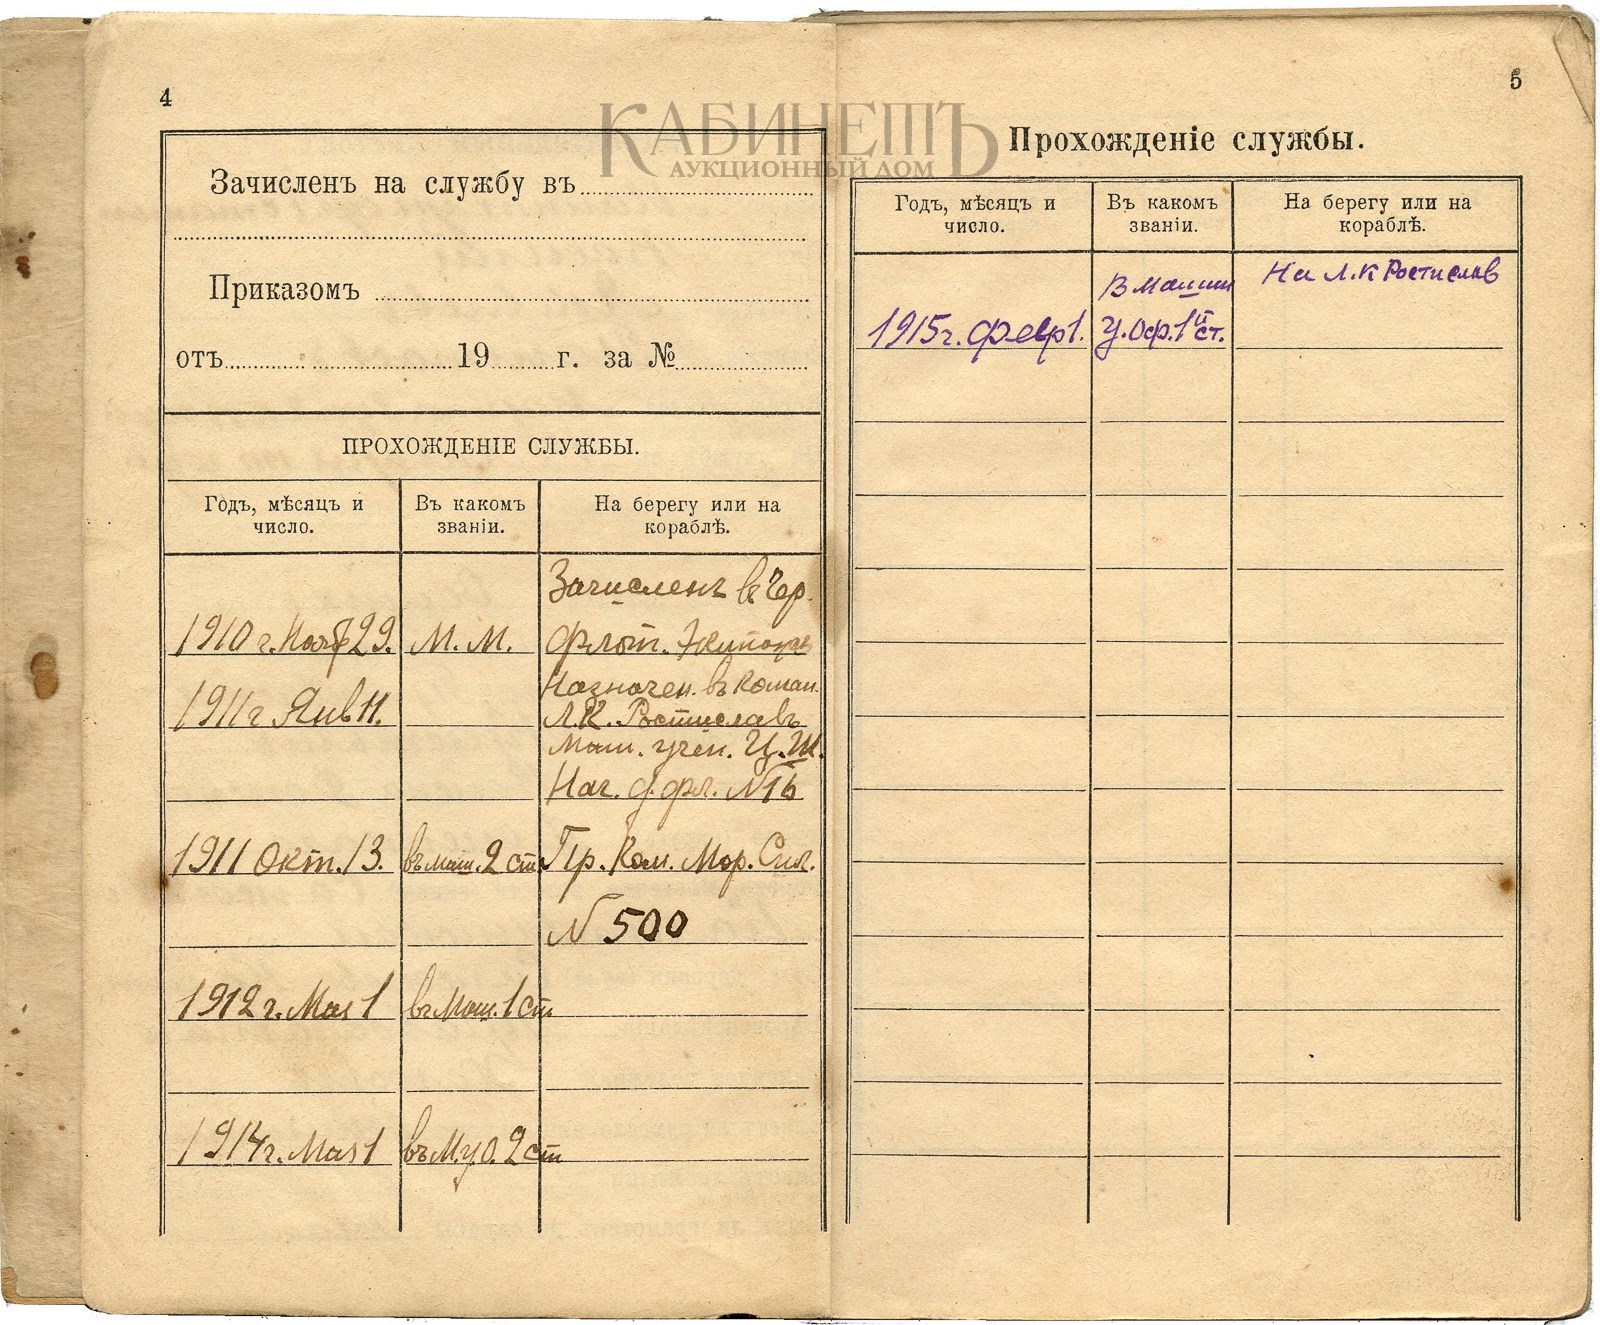 4
КАБИНЕТЪ
АУКЦИОННЫЙ ДОМ
Зачисленъ на службу въ
Приказомъ
отъ 19 г. за №
ПРОХОЖДЕНІЕ СЛУЖБЫ.
Годъ, мѣсяцъ и число.
Въ какомъ званіи.
На берегу или на кораблѣ.
Зачисленъ в Чер.
1910 г. Нояб 29. М. М. флот. Экипажъ
Назначен. въ Коман.
1911 г Янв 11. Л.К. Ростиславъ
Маш. учен. Ц.Ш.
Нач. д. фл. N 16
1911 Окт. 13. въ маш. 2 ст. Пр. Ком. Мор. Сил.
N 500
1912 г. Мая 1 въ Маш. 1 ст.
1914 г. Мая 1 въ М.у.О. 2 ст
5
Прохожденіе службы.
Годъ, мѣсяцъ и число.
Въ какомъ званіи.
На берегу или на кораблѣ.
В Машин На Л.К Ростислав
1915 г. Февр 1. У. Оф. 1й ст.